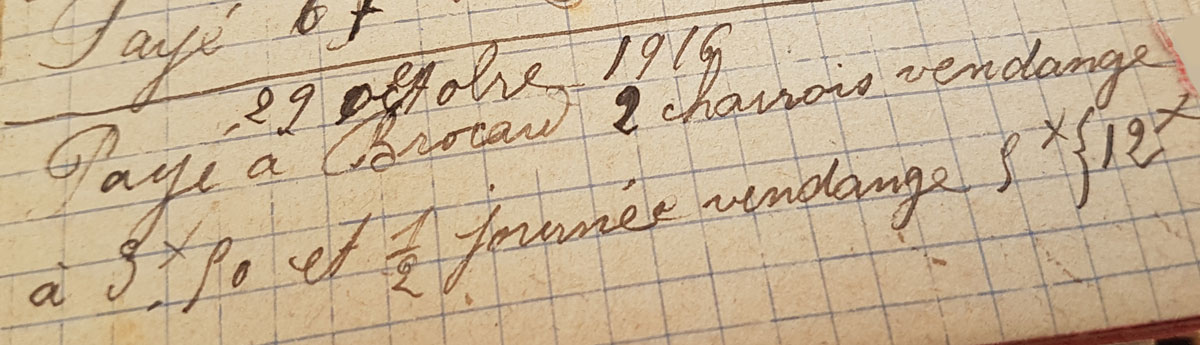 Payé 67
29 octobre 1916
Payé à Brocard 2 charrois vendange
à 3 x 50 et 1/2 journée vendange 5 x { 12 x